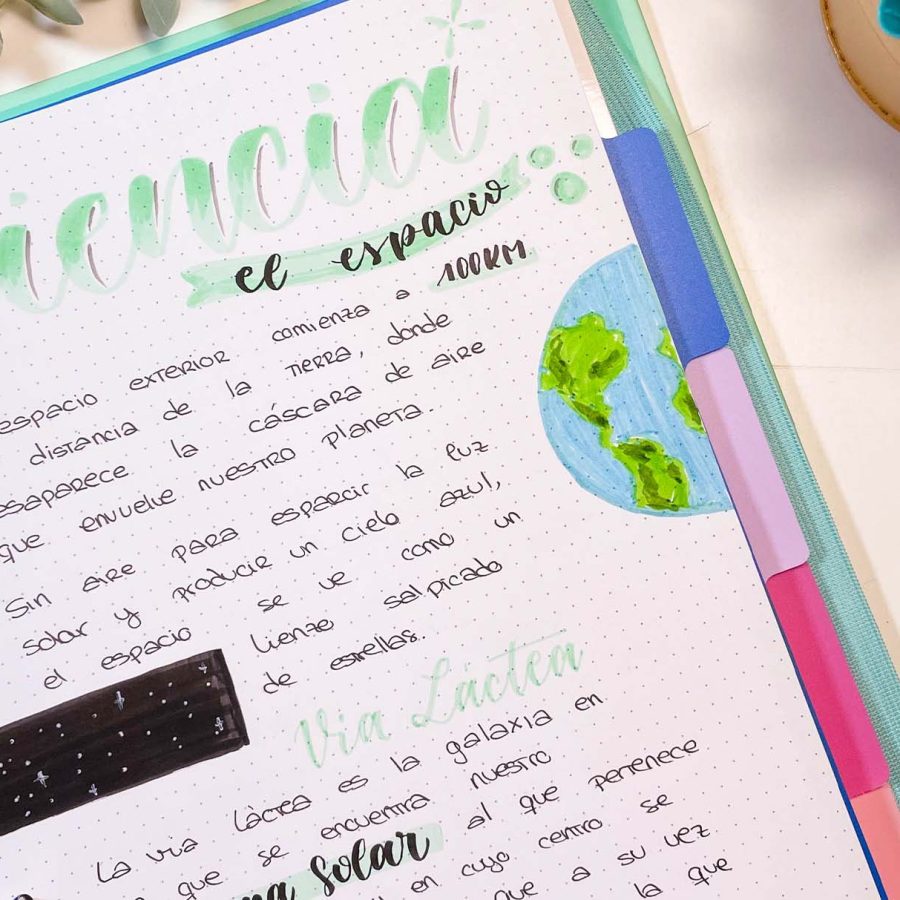 iencia
el espacio
espacio exterior comienza a 100KM
distancia de la tierra, donde
esaparece la cáscara de aire
que envuelve nuestro planeta.
Sin aire para esparcir la luz
solar y producir un cielo azul,
el espacio se ve como un
lienzo salpicado
de estrellas.
Via Láctea
La via Làctea es la galaxia en
que se encuentra nuestro
ma solar al que pertenece
en cuyo centro se
que a su vez
la que